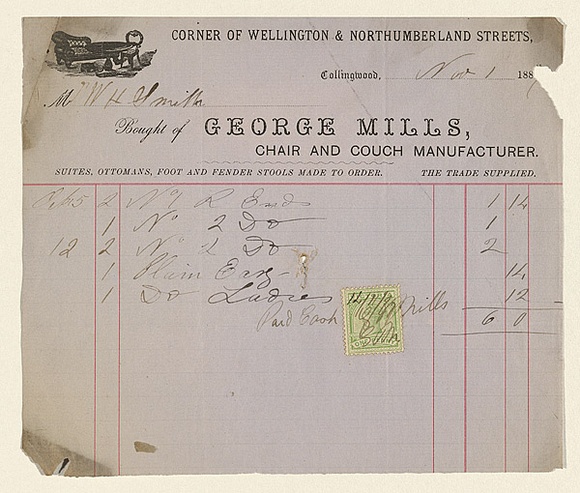 CORNER OF WELLINGTON & NORTHUMBERLAND STREETS,
Collingwood, Nov 1 188
Mr W H Smith
Bought of GEORGE MILLS,
CHAIR AND COUCH MANUFACTURER.
SUITES, OTTOMANS, FOOT AND FENDER STOOLS MADE TO ORDER. THE TRADE SUPPLIED.
2 No 1 R Ends 1 14
1 No 2 Do 1
12 2 No 2 Do 2
1 Plain Easy 14
1 Do Ladies 12
Paid Cash Mills 6 0